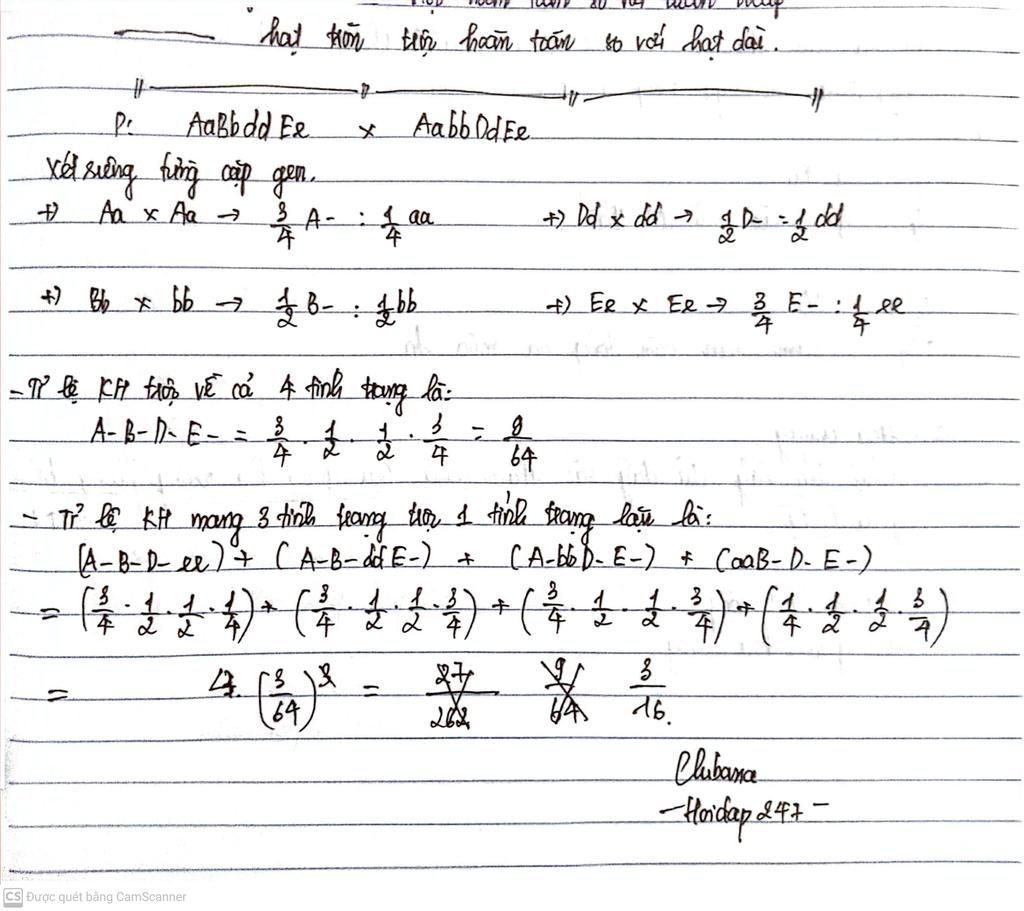 hạt tròn trội hoàn toàn so với hạt dài.
P: AaBbddEe x AabbDdEe
Xét riêng từng cặp gen.
+) Aa x Aa → 3/4 A- : 1/4 aa +) Dd x dd → 1/2 D- : 1/2 dd
+) Bb x bb → 1/2 B- : 1/2 bb +) Ee x Ee → 3/4 E- : 1/4 ee
- Tỉ lệ KH trội về cả 4 tính trạng là:
A-B-D-E- = 3/4 . 1/2 . 1/2 . 3/4 = 9/64
- Tỉ lệ KH mang 3 tính trạng trội 1 tính trạng lặn là:
(A-B-D-ee) + (A-B-ddE-) + (A-bbD-E-) + (aaB-D-E-)
= (3/4 . 1/2 . 1/2 . 1/4) + (3/4 . 1/2 . 1/2 . 3/4) + (3/4 . 1/2 . 1/2 . 3/4) + (1/4 . 1/2 . 1/2 . 3/4)
= (3/64) = 3/16.
-Hoidap247-
CS Được quét bằng CamScanner